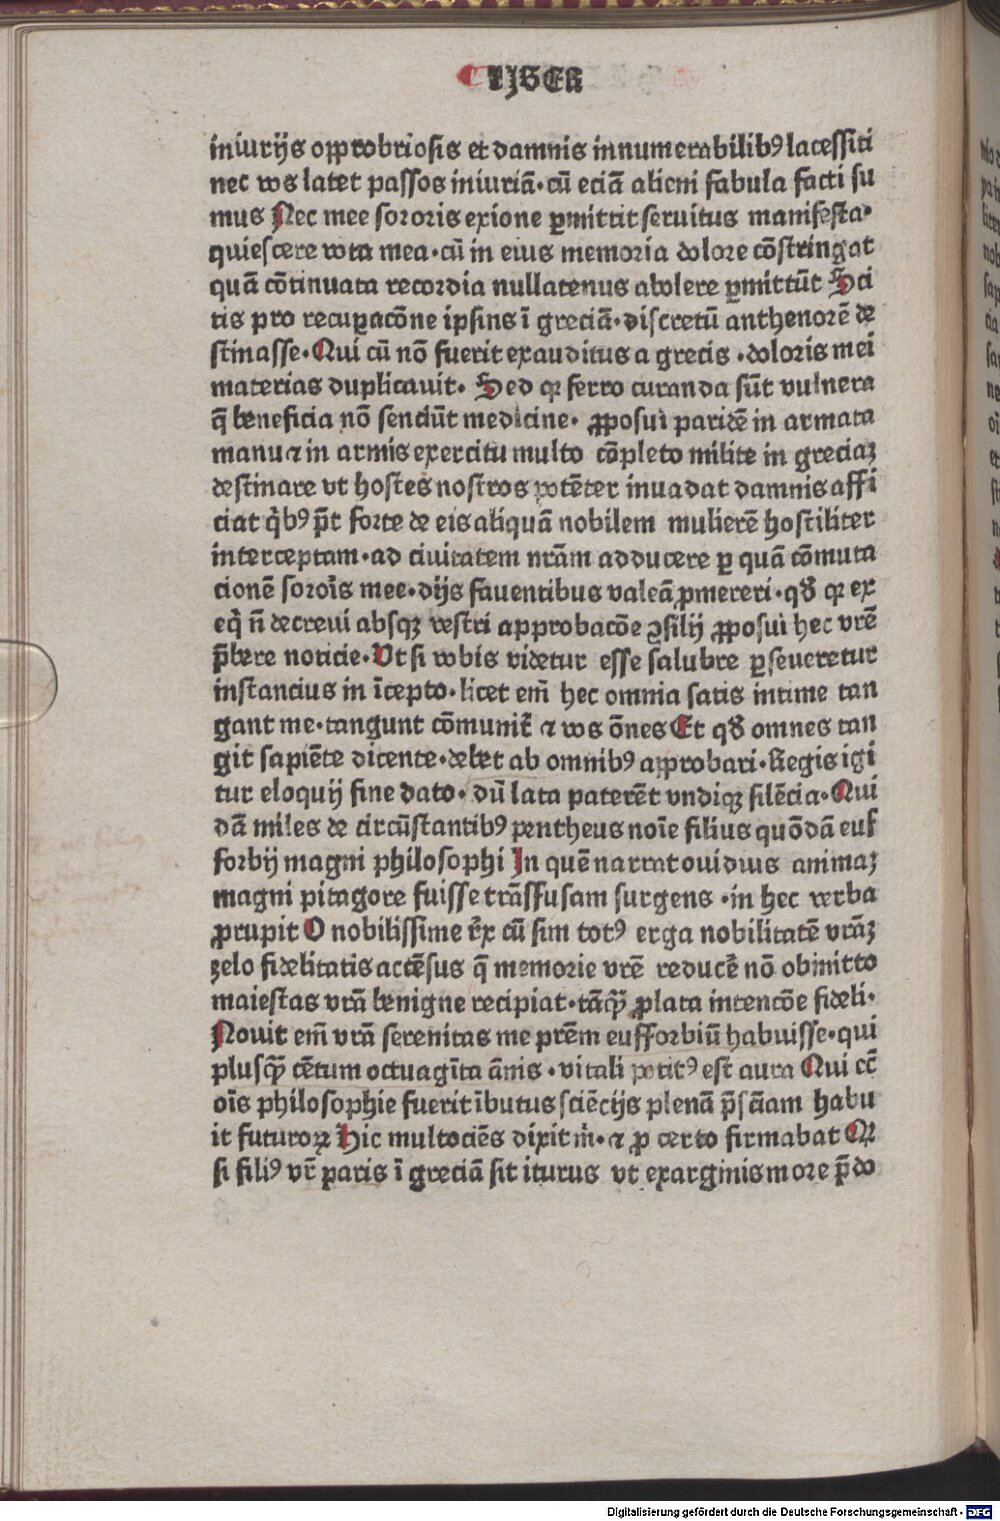 LIBER
iniurijs opprobriosis et damnis innumerabilibꝰ lacessiti
nec vos latet passos iniuriā·cū eciā alieni fabula facti su
mus Nec mee sororis exione ꝑmittit seruitus manifesta·
quiescere vota mea·cū in eius memoria dolore cōstringat
quā cōtinuata recordia nullatenus abolere ꝑmittūt Sci
tis pro recuꝑacōne ipsius ī greciā·discretū anthenorē de
stinasse·Qui cū nō fuerit exauditus a grecis ·doloris mei
materias duplicauit· Sed qꝛ ferro curanda sūt vulnera
q̄ beneficia nō senciūt medicine· ꝓposui paridē in armata
manu ⁊ in armis exercitu multo cōpleto milite in greciaꝫ
destinare vt hostes nostros potēter inuadat damnis affi
ciat q̇bꝰ p̄t forte de eis aliquā nobilem mulierē hostiliter
interceptam·ad ciuitatem nrām adducere ꝑ quā cōmuta
cionē soroīs mee·dijs fauentibus valeā ꝓmereri·qđ qꝛ ex
eq̇ n̄ decreui absqꝫ vestri approbacōe ꝯsilij ꝓposui hec vrē
p̄bere noticie·Vt si vobis videtur esse salubre ꝑseueretur
instancius in īcepto·licet em̄ hec omnia satis intime tan
gant me·tangunt cōmunit̄ ⁊ vos ōnes Et qđ omnes tan
git sapiēte dicente·debet ab omnibꝰ approbari·Regis igi
tur eloquij fine dato· dū lata paterēt vndiqꝫ silēcia·Qui
dā miles de circūstantibꝰ pentheus noīe filius quōdā euf
forbij magni philosophi In quē narrat ouidius animaꝫ
magni pitagore fuisse trāsfusam surgens ·in hec verba
ꝓrupit O nobilissime r̄x cū sim totꝰ erga nobilitatē vrāꝫ
zelo fidelitatis accēsus q̄ memorie vrē reducē nō obmitto
maiestas vrā benigne recipiat·tāqꝫ̄ ꝓlata intencōe fideli·
Nouit em̄ vrā serenitas me prēm eufforbiū habuisse·qui
plusqꝫ̄ cētum octuagīta ānis ·vitali potitꝰ est aura Qui cc̄
oīs philosophie fuerit ībutus sciēcijs plenā p̄sciam habu
it futuroꝝ Hic multociēs dixit m̄·⁊ ꝓ certo firmabat Qꝛ
si filiꝰ vr̄ paris ī greciā sit iturus vt exarginis more p̄do
Digitalisierung gefördert durch die Deutsche Forschungsgemeinschaft - DFG